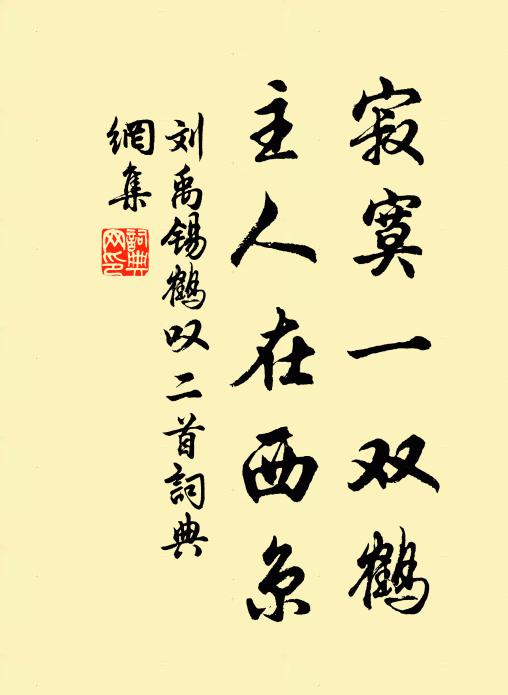 寂寞一双鹤
主人在西京
刘禹锡鹤叹二首詞典
網集
詞典
网印